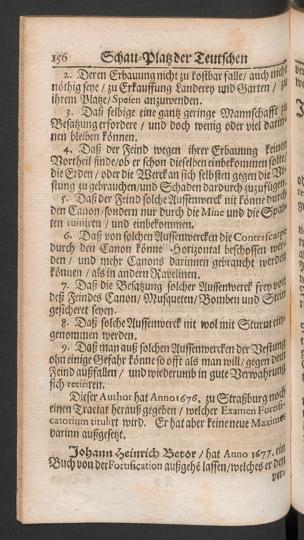 156 Schau-Platz der Teutschen
2. Deren Erbauung nicht zu kostbar falle/ auch nicht
nöthig seye / zu Erkauffung Länderey und Garten / zu
ihrem Platze/ Spesen anzuwenden.
3. Daß selbige eine gantz geringe Mannschafft zu
Besatzung erfordere / und doch wenig oder viel darin-
nen bleiben können.
4. Daß der Feind wegen ihrer Erbauung keinen
Vortheil finde/ ob er schon dieselben einbekommen sollte/
die Erden / oder die Werck an sich selbsten gegen die Ve-
stung zu gebrauchen/ und Schaden dardurch zuzufügen.
5. Daß der Feind solche Aussenwerck nit könne durch
den Canon/ sondern nur durch die Mine und die Spa-
ten ruiniren / und einbekommen.
6. Daß von solchen Aussenwercken die Contrescarpe
durch den Canon könne Horizontal beschossen wer-
den / und mehr Canons darinnen gebraucht werden
können / als in andern Ravelinen.
7. Daß die Besatzung solcher Aussenwerck frey von
deß Feindes Canon/ Musqueten/ Bomben und Stein
gesicheret seyen.
8. Daß solche Aussenwerck nit wol mit Sturm ein-
genommen werden.
9. Daß man auß solchen Aussenwercken der Vestung
ohn einige Gefahr könne so offt als man will/ gegen dem
Feind außfallen / und wiederumb in gute Verwahrung
sich retiriren.
Dieser Author hat Anno 1676. zu Straßburg noch
einen Tractat herauß gegeben / welcher Examen Fortifi-
catorium titulirt wird. Er hat aber keine neue Maximes
darinn außgesetzt.
Johann Heinrich Behr / hat Anno 1677. ein
Buch von der Fortification außgehē lassen/ welches er den
ver-